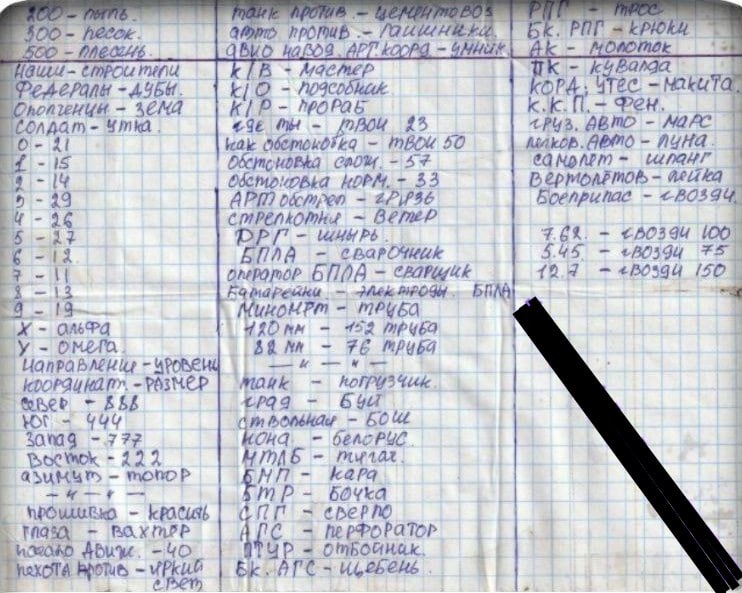 200 - пыль.
300 - песок.
500 - плесень.
Наши - строители
Федералы - дубы.
Ополченцы - зема
Солдат - утка.
0 - 21
1 - 15
2 - 14
3 - 29
4 - 26
5 - 27
6 - 12
7 - 11
8 - 13
9 - 19
Х - альфа
У - омега.
Направление - уровень
координат. - размер
север - 888
Юг - 444
Запад - 777
Восток - 222
азимут - топор
— и — и —
прошивка - красить
глаза - вахтёр
движ. - 40
пехота против - яркий
свет
танк против - цементовоз
авто против - гаишники.
авио навод. арт. коорд - умник.
К/В - мастер
К/О - подсобник
К/Р - прораб
где ты - твои 23
как обстоновка - твои 50
Обстоновка слож. - 57
обстоновка норм. - 33
АРТ обстрел - грязь
стрелкотня - ветер
ДРГ - шнырь.
БПЛА - сварочник
оператор БПЛА - сварщик
батарейки - электроды. БПЛА
Миномёт - труба
120 мм - 152 труба
82 мм - 76 труба
— и — и —
танк - погрузчик.
град - буй
ствольная - БОШ
нона - белорус.
МТЛБ - тягач.
БМП - кара
БТР - бочка
СПГ - сверло
АГС - перфоратор
ПТУР - отбойник.
Бк. АГС - щебень.
РПГ - трос
Бк. РПГ - крюки
АК - молоток
ПК - кувалда
КОРД, Утес - макита.
К.К.П. - фен.
груз. авто - марс
легков. авто - луна.
самолет - шланг
вертолётов - лейка
Боеприпас - гвозди.
7.62. - гвозди 100
5.45. - гвозди 75
12.7 - гвозди 150